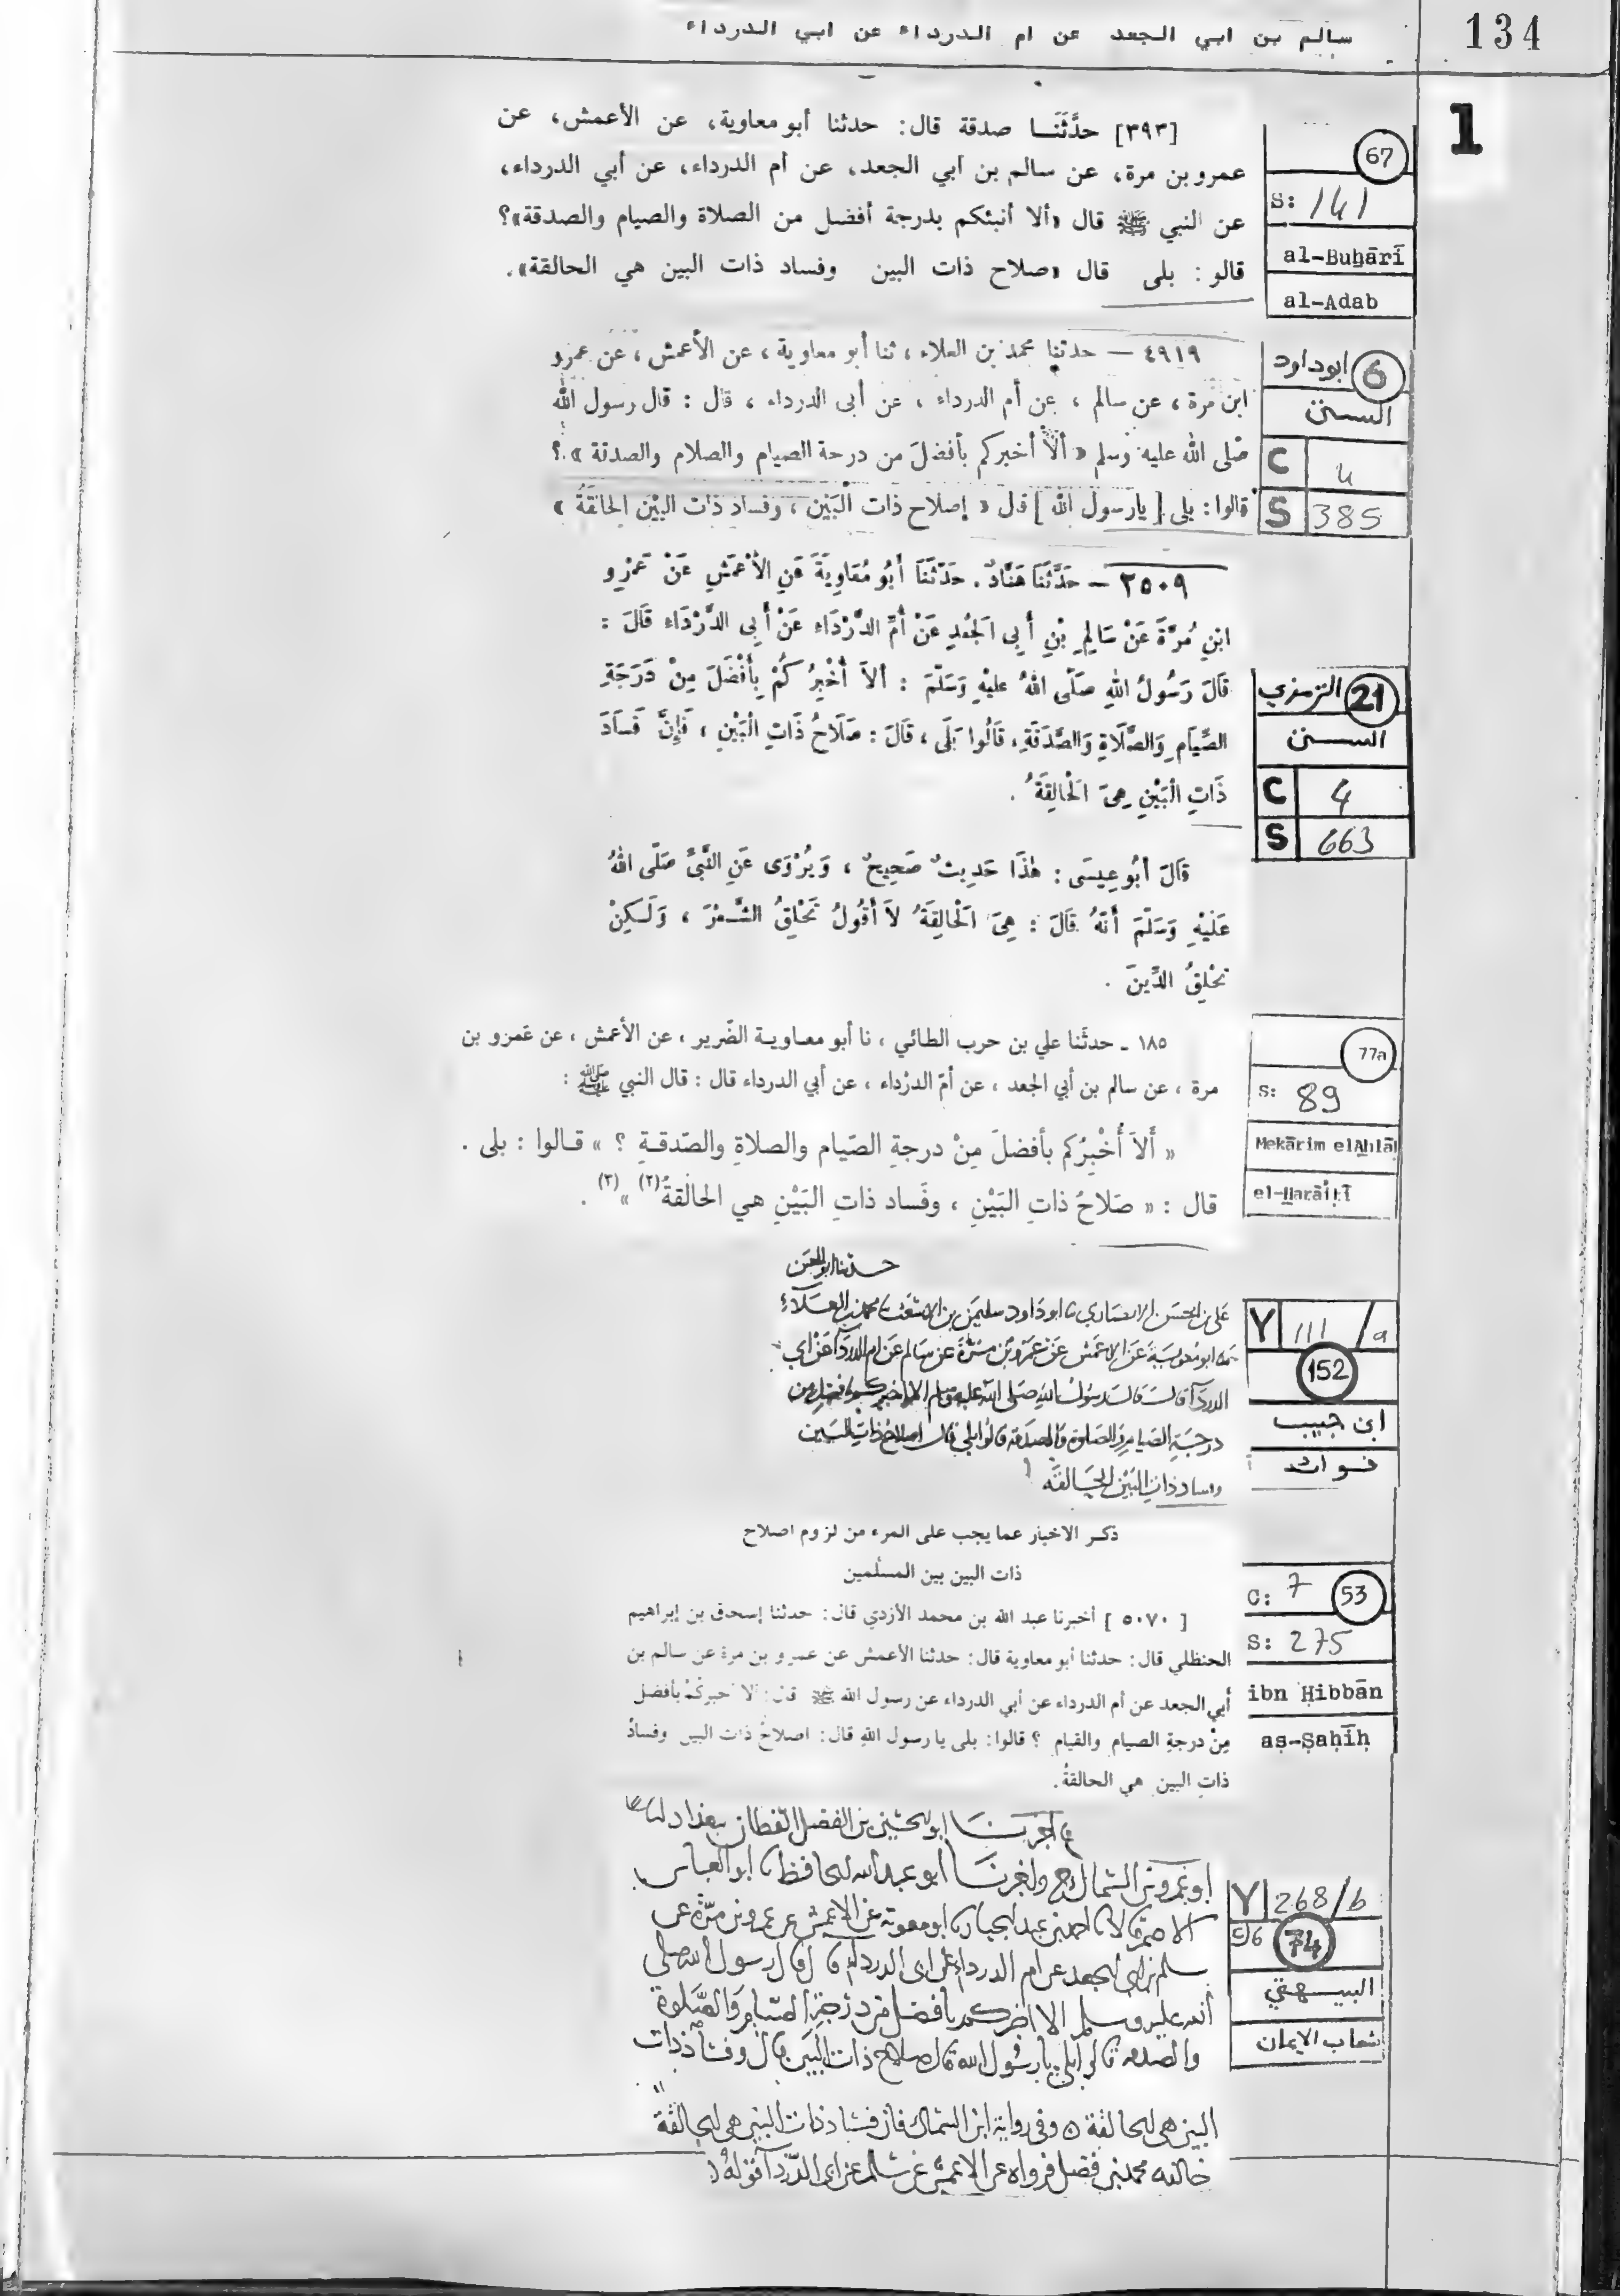 سالم بن ابي الجعد عن ام الدرداء عن ابي الدرداء
134
1
[٣٩٣] حدَّثَنَا صدقة قال: حدثنا أبو معاوية، عن الأعمش، عن
عمرو بن مرة، عن سالم بن أبي الجعد، عن أم الدرداء، عن أبي الدرداء،
عن النبي ﷺ قال «ألا أنبئكم بدرجة أفضل من الصلاة والصيام والصدقة»؟
قالو: بلى قال «صلاح ذات البين وفساد ذات البين هي الحالقة».
67
S: 141
al-Buḫārī
al-Adab
٤٩١٩ — حدثنا محمد بن العلاء، ثنا أبو معاوية، عن الأعمش، عن عمرو
ابن مُرة، عن سالم، عن أم الدرداء، عن أبى الدرداء، قال: قال رسول الله
صلى الله عليه وسلم «ألاَ أخبركم بأفضلَ من درجة الصيام والصلاة والصدقة»؟
قالوا: بلى [يارسول الله] قال «إصلاح ذات البَيْنِ، وفساد ذات البَيْنِ الحالقَةُ»
6 ابوداود
السنن
C 4
S 385
٢٥٠٩ — حَدَّثَنَا هَنَّادٌ. حَدَّثَنَا أَبُو مُعَاوِيَةَ عَنِ الأَعْمَشِ عَنْ عَمْرِو
ابْنِ مُرَّةَ عَنْ سَالِمِ بْنِ أَبِى الْجَعْدِ عَنْ أُمِّ الدَّرْدَاءِ عَنْ أَبِى الدَّرْدَاءِ قَالَ:
قَالَ رَسُولُ اللهِ صَلَّى اللهُ عَلَيْهِ وَسَلَّمَ: أَلاَ أُخْبِرُكُمْ بِأَفْضَلَ مِنْ دَرَجَةِ
الصِّيَامِ وَالصَّلَاةِ وَالصَّدَقَةِ، قَالُوا بَلَى، قَالَ: صَلَاحُ ذَاتِ الْبَيْنِ، فَإِنَّ فَسَادَ
ذَاتِ الْبَيْنِ هِىَ الْحَالِقَةُ.
قَالَ أَبُو عِيسَى: هٰذَا حَدِيثٌ صَحِيحٌ، وَيُرْوَى عَنِ النَّبِىِّ صَلَّى اللهُ
عَلَيْهِ وَسَلَّمَ أَنَّهُ قَالَ: هِىَ الْحَالِقَةُ لاَ أَقُولُ تَحْلِقُ الشَّعْرَ، وَلَكِنْ
تَحْلِقُ الدِّينَ.
21 الترمذي
السنن
C 4
S 663
١٨٥ ـ حدثَنا علي بن حرب الطائي، نا أبو معاوية الضّرير، عن الأعمش، عن عَمرو بن
مرة، عن سالم بن أبي الجعد، عن أمّ الدرْداء، عن أبي الدرداء قال: قال النبي ﷺ:
«أَلاَ أُخْبِرُكم بأفضلَ مِنْ درجةِ الصّيام والصلاةِ والصّدقةِ؟» قالوا: بلى.
قال: «صَلاحُ ذاتِ البَيْنِ، وفَساد ذاتِ البَيْنِ هي الحالقةُ(٢)»(٣).
77a
S: 89
Mekārim elAḫlāḳ
el-Ḫarāiṭī
حدثنا ابو الحسن
على بن الحسن الانصاري نا ابو داود سليمن بن الاشعث نا محمد بن العلاء
نا ابو معوية عن الاعمش عن عمرو بن مرة عن سالم عن ام الدردآ عن ابي
الدردآ قال قال رسول الله صلى الله عليه وسلم الا اخبركم بافضل من
درجة الصيام والصلوة والصدقة قالوا بلى قال اصلاح ذات البين
وفساد ذات البين الحالقة
Y 111/a
152
ابن حبيب
فوائد
ذكر الاخبار عما يجب على المرء من لزوم اصلاح
ذات البين بين المسلمين
[٥٠٧٠] أخبرنا عبد الله بن محمد الأزدي قال: حدثنا إسحاق بن إبراهيم
الحنظلي قال: حدثنا أبو معاوية قال: حدثنا الأعمش عن عمرو بن مرة عن سالم بن
أبي الجعد عن أم الدرداء عن أبي الدرداء عن رسول الله ﷺ قال: ألا أخبركُمْ بأفضل
مِنْ درجةِ الصيام والقيام؟ قالوا: بلى يا رسول اللهِ قال: اصلاحُ ذات البين وفسادُ
ذاتِ البين هي الحالقةُ.
C: 7 53
S: 275
ibn Ḥibbān
aṣ-Ṣaḥīḥ
اخبرنا ابو الحسين بن الفضل القطان ببغداد انا
ابو عمرو بن السماك ح واخبرنا ابو عبد الله الحافظ نا ابو العباس
الاصم قالا نا احمد بن عبد الجبار نا ابو معوية عن الاعمش عن عمرو بن مرة عن
سلم بن ابي الجعد عن ام الدرداء عن ابى الدرداء قال قال رسول الله صلى
الله عليه وسلم الا اخبركم بافضل من درجة الصيام والصلوة
والصدقة قالوا بلى يا رسول الله قال صلاح ذات البين قال وفساد ذات
البين هي الحالقة ٥ وفي رواية ابن السماك فان فساد ذات البين هي الحالقة
خالفه محمد بن فضيل فرواه عن الاعمش عن سالم عن ام الدردآ قوله
Y 268/b
c/6 74
البيهقي
شعاب الايمان